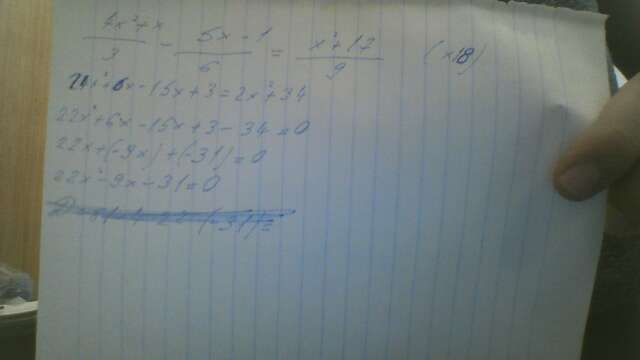 (4x²+x)/3 - (5x-1)/6 = (x²+17)/9 (x18)
24x²+6x-15x+3=2x²+34
22x²+6x-15x+3-34=0
22x+(-9x)+(-31)=0
22x²-9x-31=0